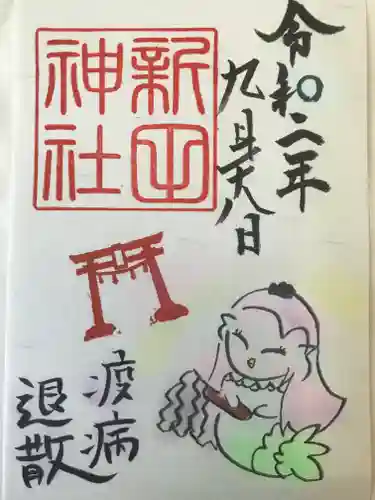 令和二年
九月八日
新田
神社
疫病
退散